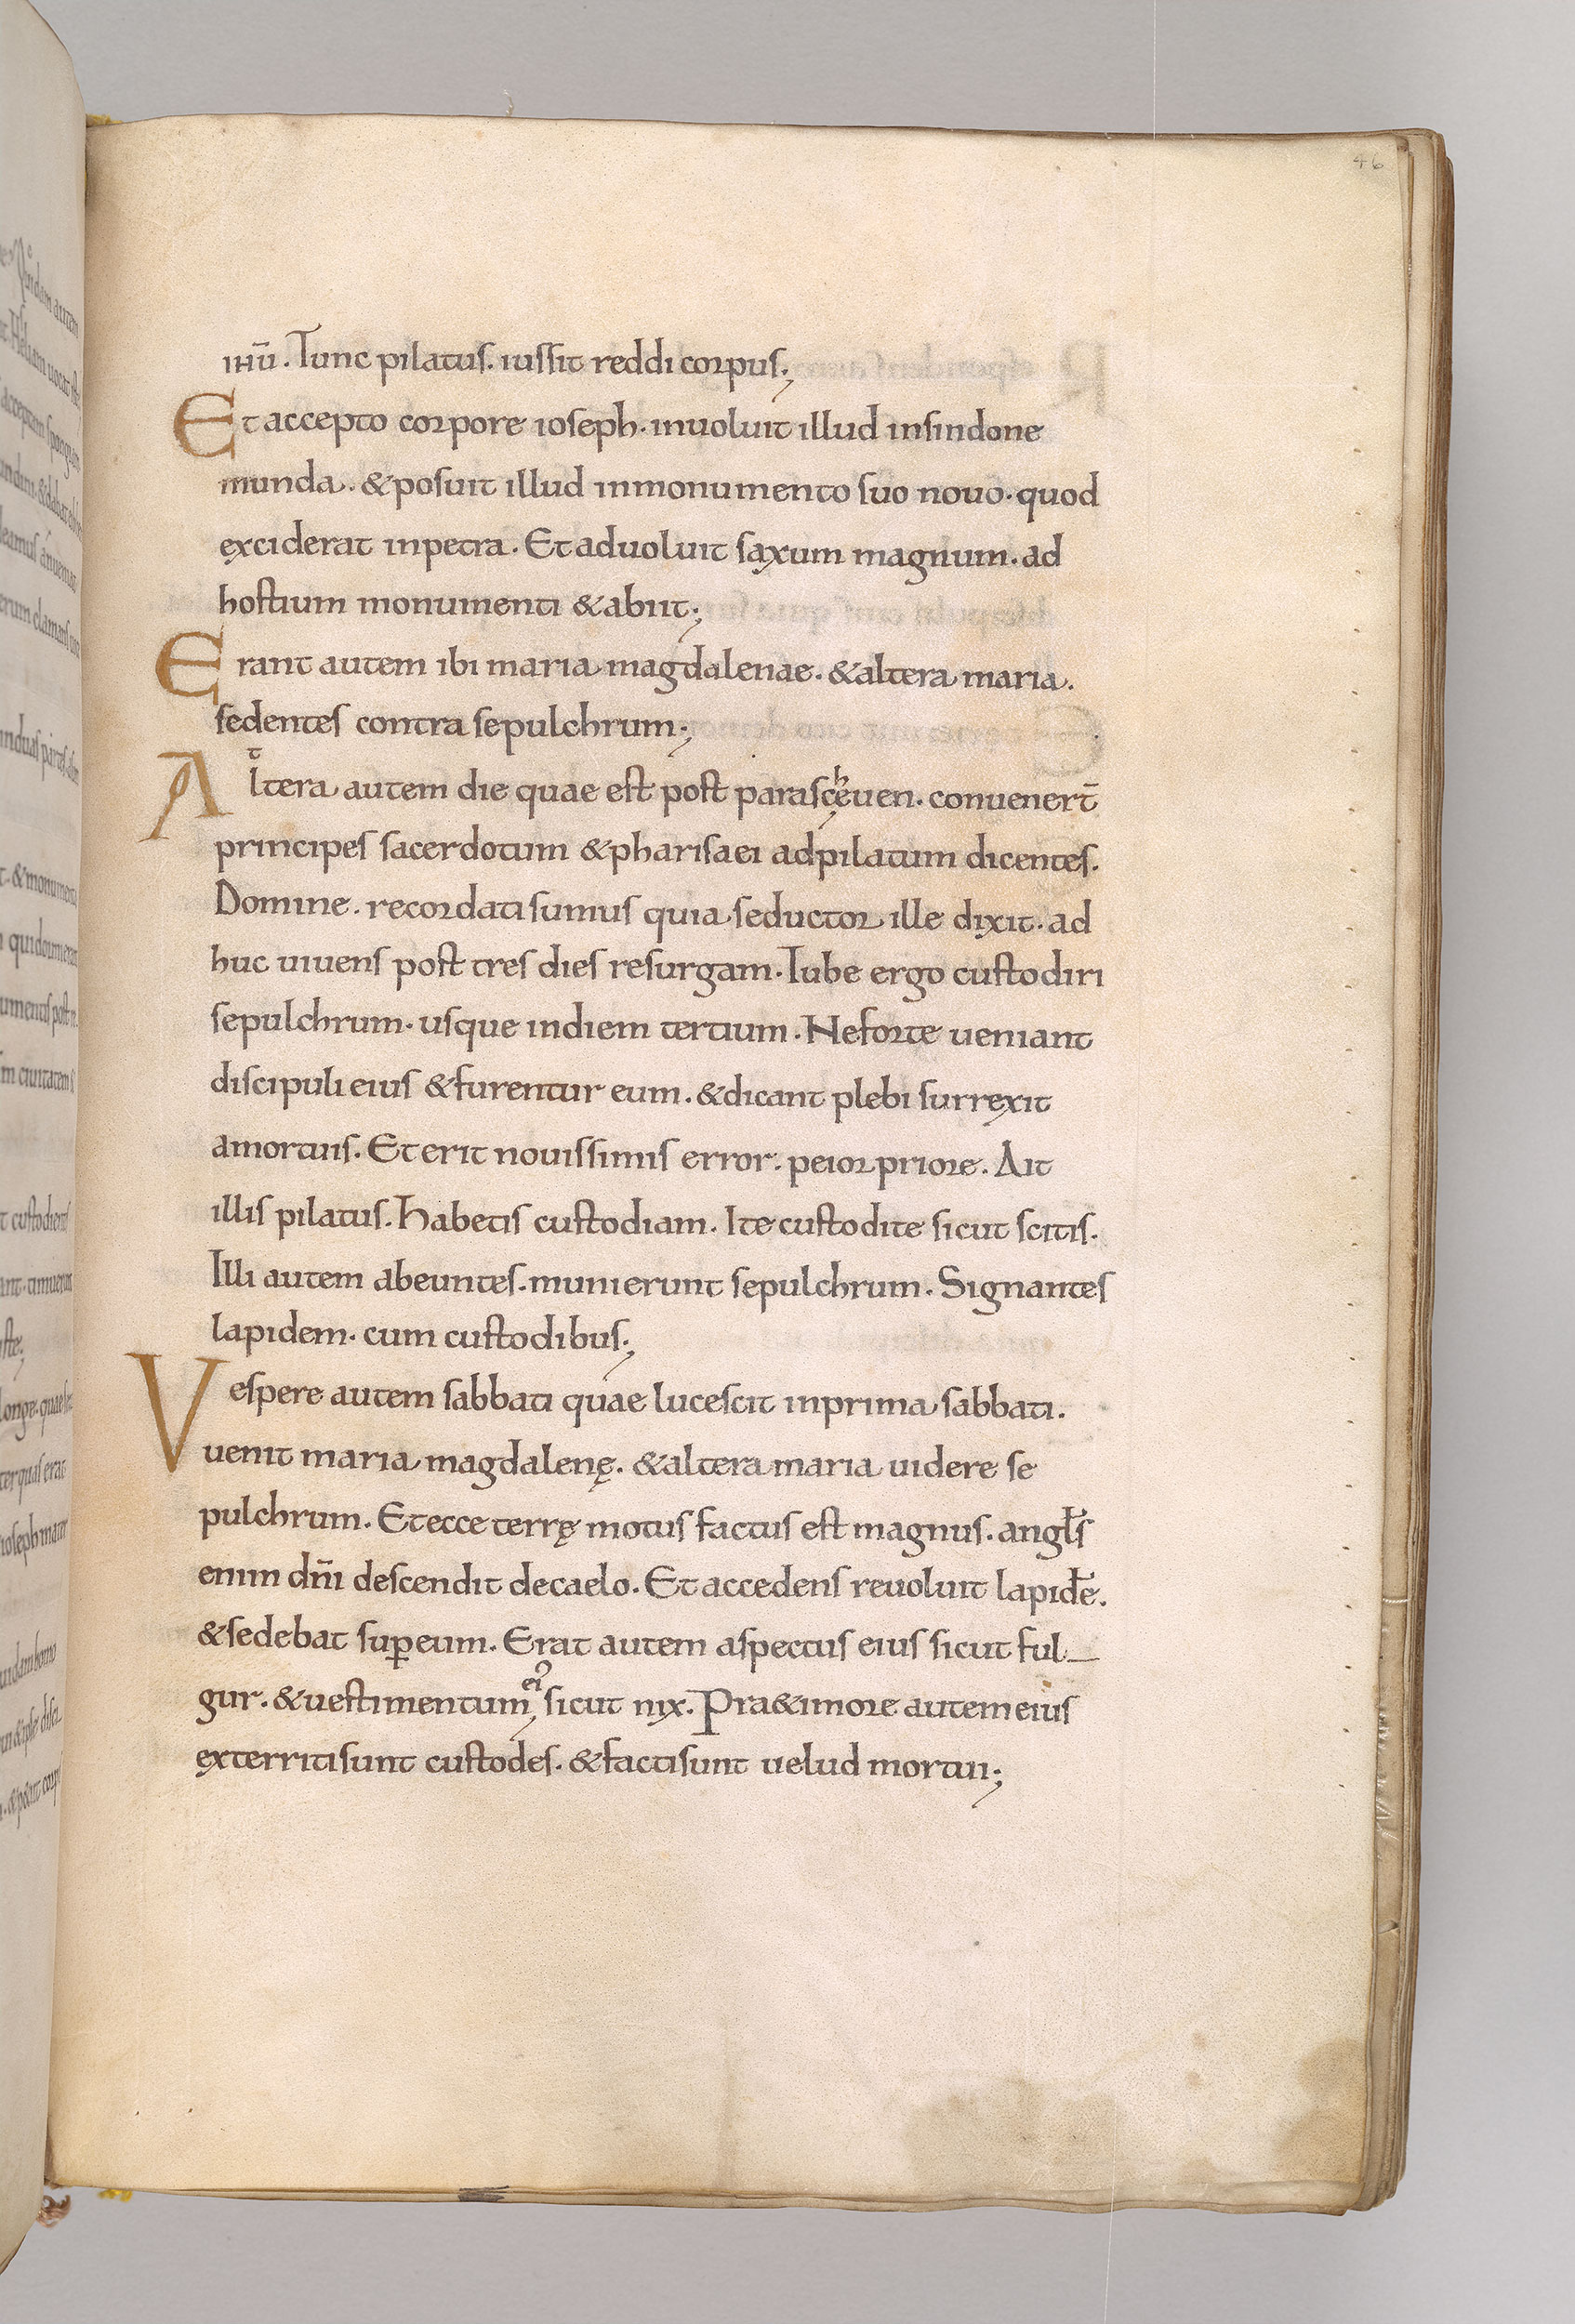 46
ıħū. Tunc pilatus. iussit reddi corpus;
Et accepto corpore ioseph. inuoluit illud insindone
munda. & posuit illud inmonumento suo nouo. quod
exciderat inpetra. Et aduoluit saxum magnum. ad
hostium monumenti & abiit;
Erant autem ibi maria magdalenae. & altera maria.
sedentes contra sepulchrum;
Altera autem die quae est post parascheuen. conuenert̄
principes sacerdotum & pharisaei adpilatum dicentes.
Domine. recordati sumus quia seductor ille dixit. ad
huc uiuens post tres dies resurgam. Iube ergo custodiri
sepulchrum. usque indiem tertium. Neforte ueniant
discipuli eius & furentur eum. & dicant plebi surrexit
amortuis. Et erit nouissimis error. peior priore. Ait
illis pilatus. habetis custodiam. Ite custodite sicut scitis.
Illi autem abeuntes. munierunt sepulchrum. Signantes
lapidem. cum custodibus;
Vespere autem sabbati quae lucescit inprima sabbati.
uenit maria magdalenę. & altera maria uidere se
pulchrum. Et ecce terrę motus factus est magnus. angl̄s
enim dn̄i descendit decaelo. Et accedens reuoluit lapidē.
& sedebat suꝑ eum. Erat autem aspectus eius sicut ful
gur. & uestimentum ei᾽ sicut nix. Prae timore autem eius
exterriti sunt custodes. & facti sunt uelud mortui;